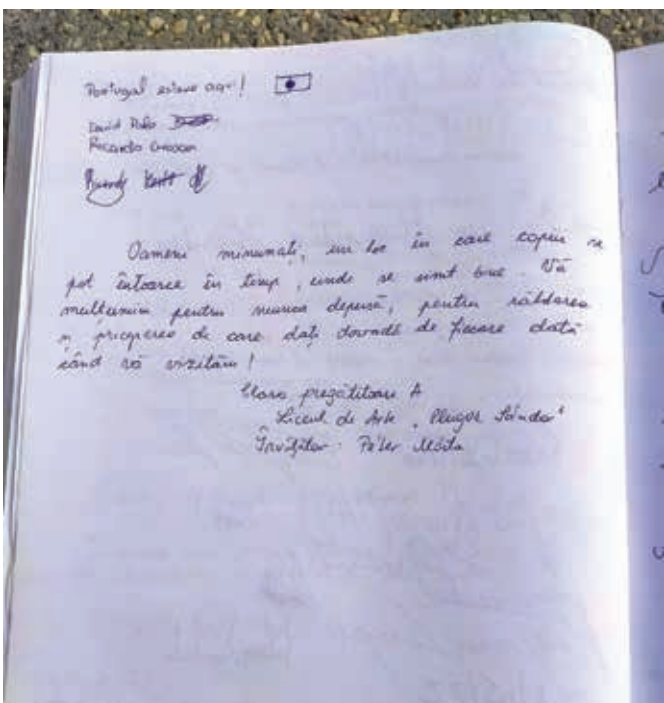 Portugal esteve aqui!
David
Ricardo
Oameni minunați, un loc în care copiii se
pot întoarce în timp, unde se simt bine. Vă
mulțumim pentru munca depusă, pentru răbdarea
și priceperea de care dați dovadă de fiecare dată
când vă vizităm!
Clasa pregătitoare A
Liceul de Arte „Plugor Sándor"
Învățător: Péter Márta